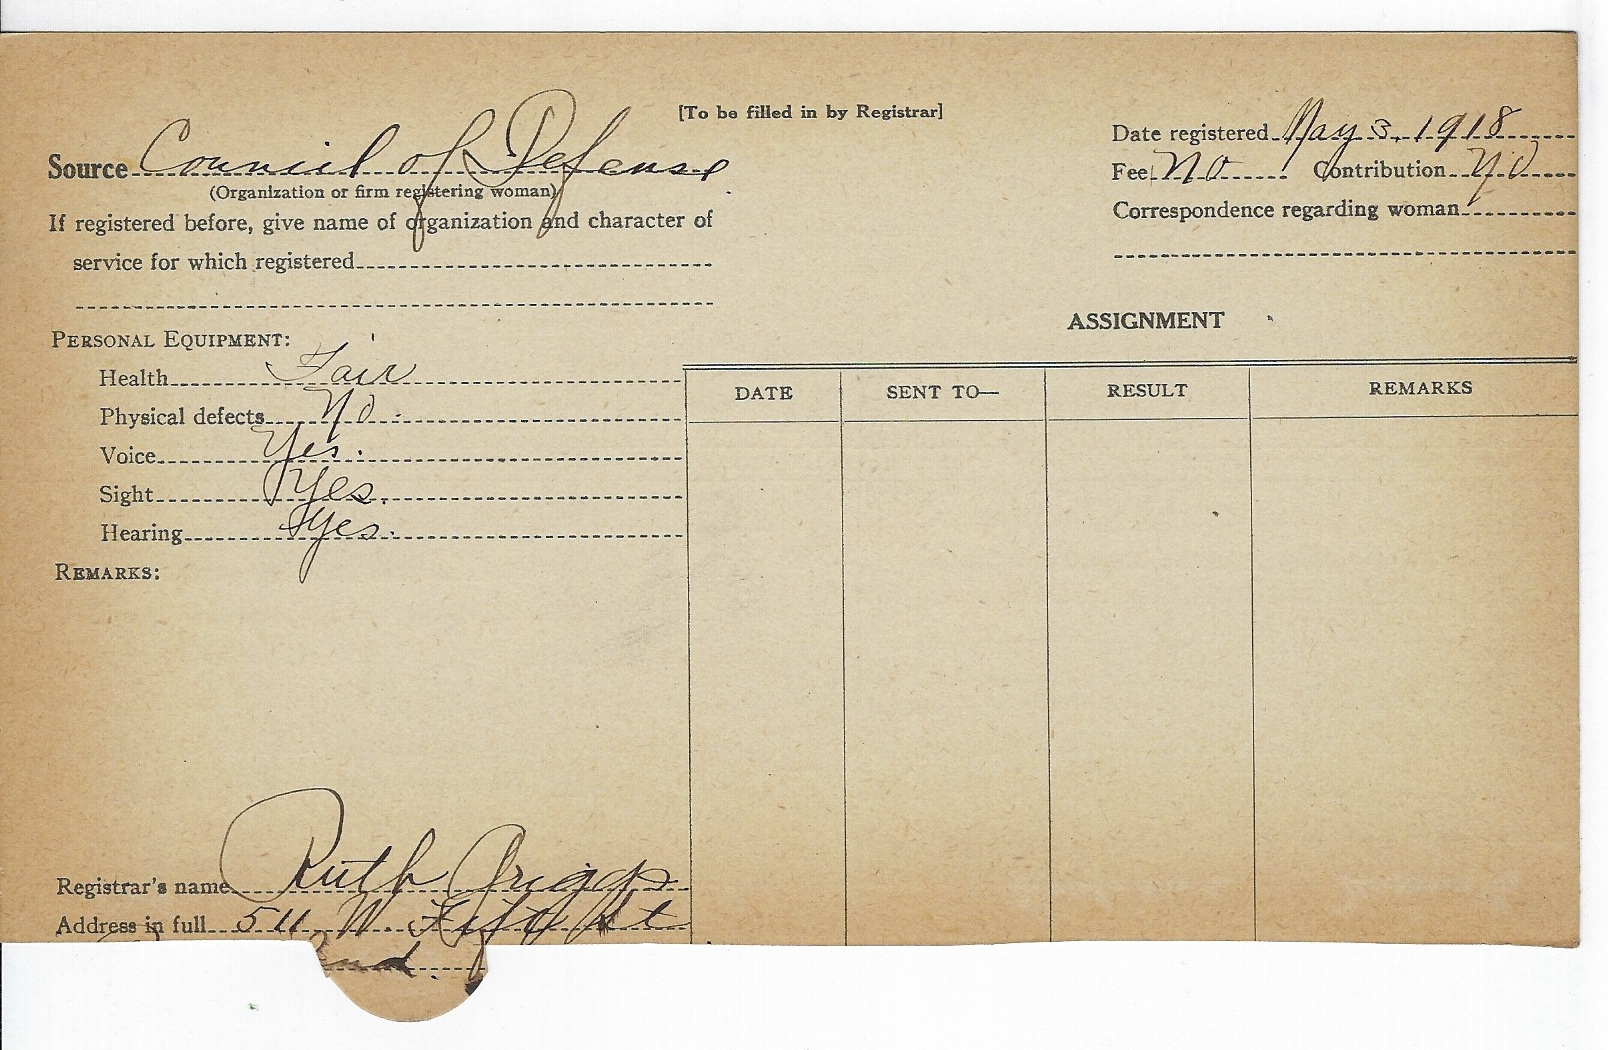 [To be filled in by Registrar]
Source Council of Defense
(Organization or firm registering woman)
If registered before, give name of organization and character of
service for which registered
Date registered May 3, 1918
Fee No Contribution No
Correspondence regarding woman
PERSONAL EQUIPMENT:
Health Fair
Physical defects No.
Voice Yes.
Sight Yes.
Hearing Yes.
REMARKS:
ASSIGNMENT
DATE SENT TO— RESULT REMARKS
Registrar's name Ruth Griggs
Address in full 511 W. St
Ind.